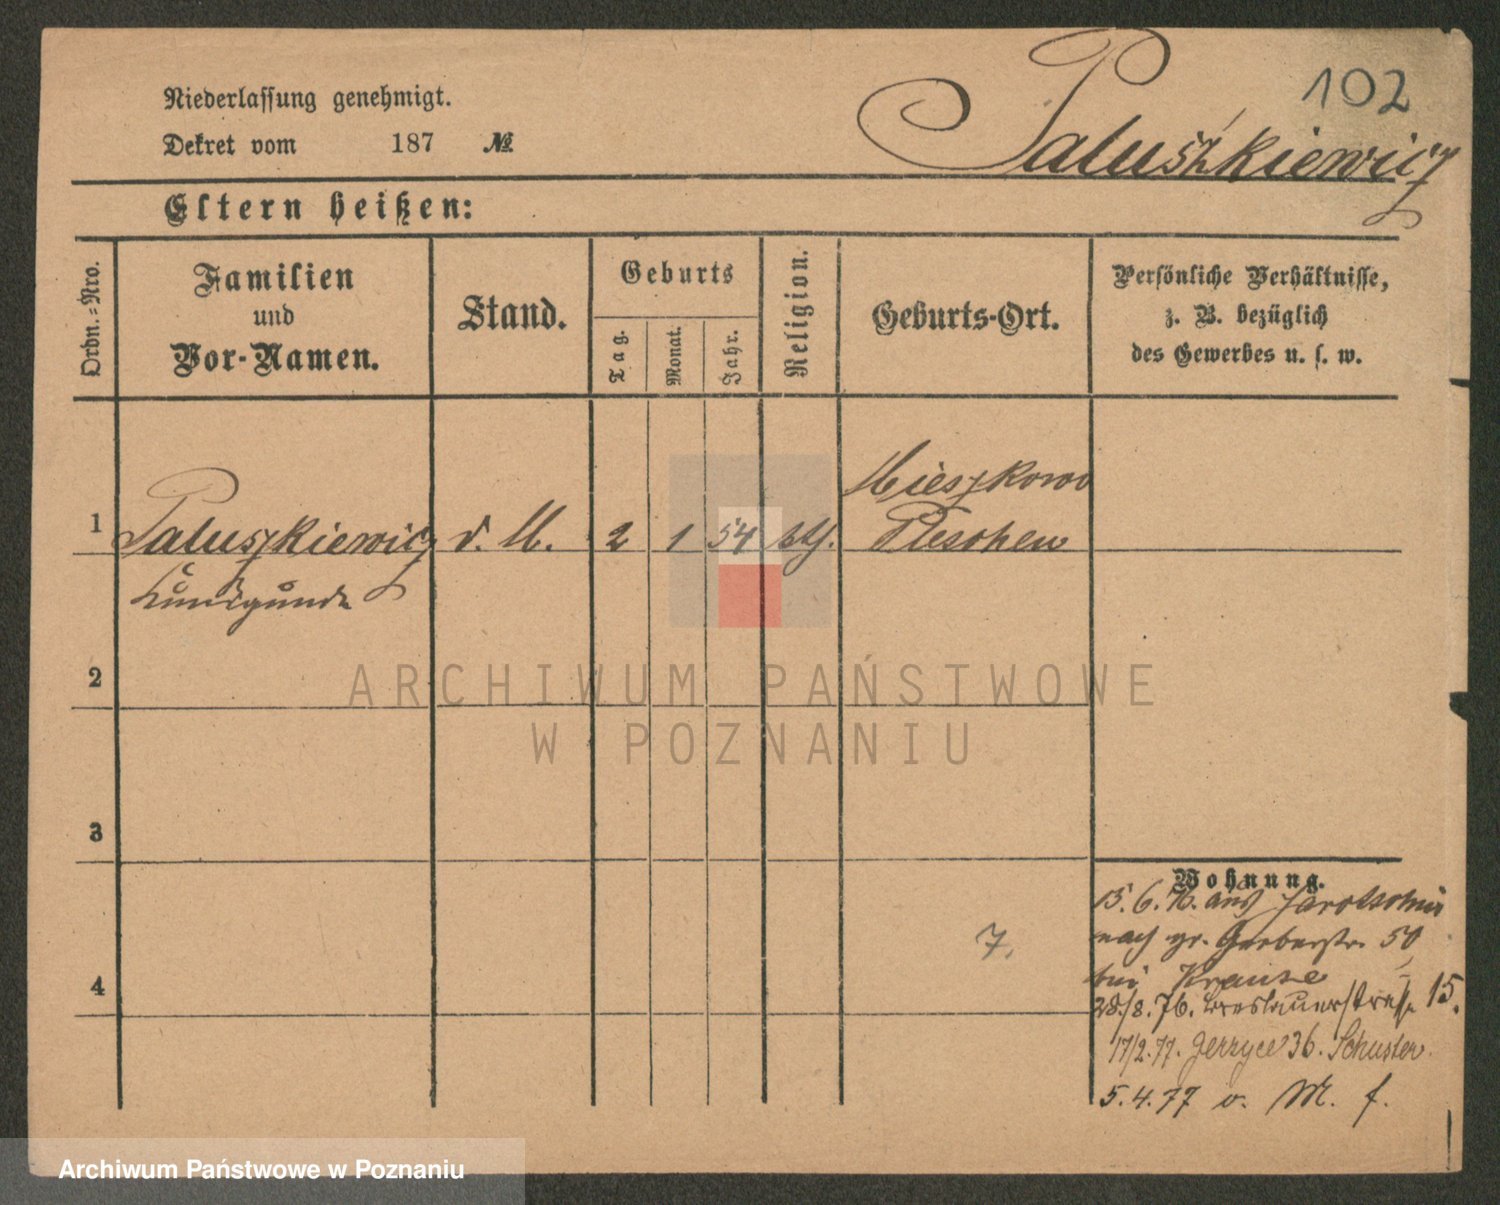 102
Paluszkiewicz
Niederlassung genehmigt.
Dekret vom 187 №
Eltern heißen:
Ordn.-Nro.
Familien
und
Vor-Namen.
Stand.
Geburts
Tag.
Monat.
Jahr.
Religion.
Geburts-Ort.
Persönliche Verhältnisse,
z. B. bezüglich
des Gewerbes u. s. w.
Mieszkowo
1 Paluszkiewicz d. M. 2 1 54 kth. Pleschen
Kunigunde
2
3
4
7.
Wohnung.
15.6.76. aus Jarotschin
nach gr. Gerberstr. 50
bei Krause
28/8.76. Breslauerstraße 15.
17/2.77. Jerzyce 36. Schuster
5.4.77 v. M. f.
ARCHIWUM PAŃSTWOWE
W POZNANIU
Archiwum Państwowe w Poznaniu